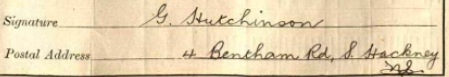 Signature G. Hutchinson
Postal Address 4 Bentham Rd, S. Hackney
N.E.